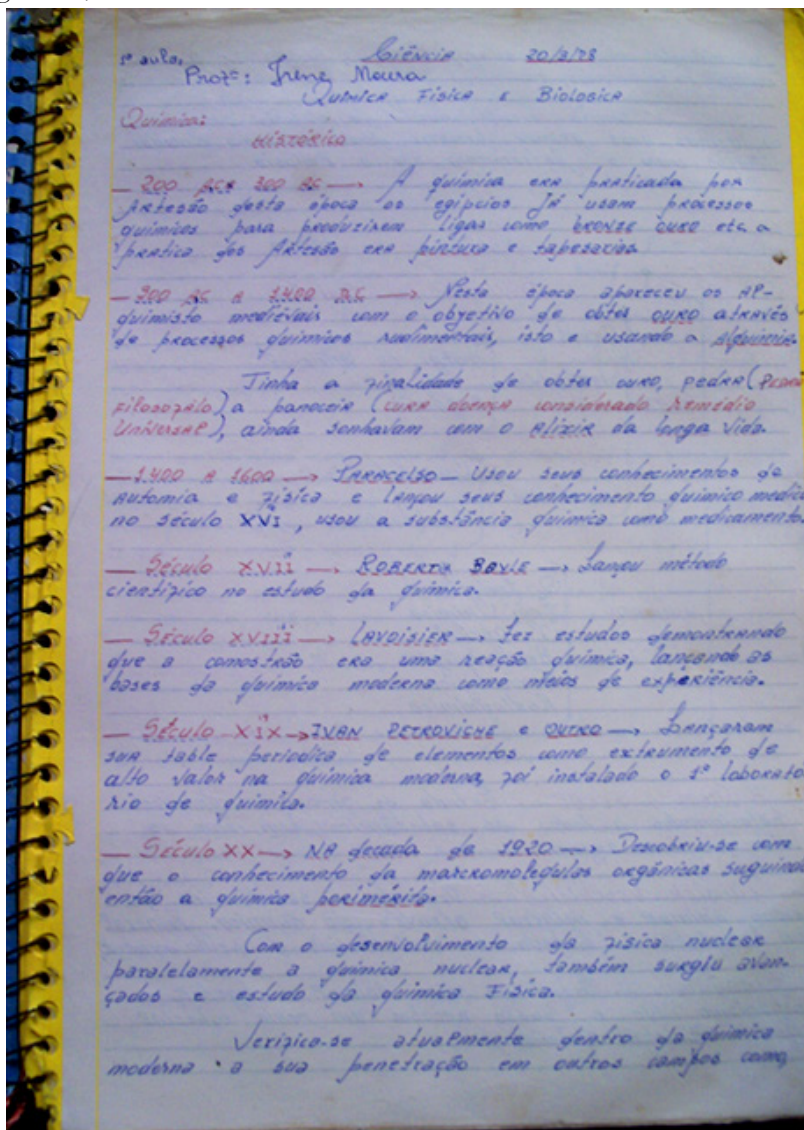 1ª aula, Ciência 20/3/78
Profª: Irene Moura
Química Física e Biologica
Química:
Histórico
— 200 AC a 300 AC → A química era praticada por
Artesão desta época os egípcios Já usam processos
químicos para produzirem ligas como bronze ouro etc a
pratica dos Artesão era pintura e tapesarias
— 300 AC a 1400 DC → Nesta época apareceu os Al-
quimisto medievais com o objetivo de obter ouro através
de processos químicos rudimentais, isto e usando a Alquimia.
Tinha a finalidade de obter ouro, pedra (Pedra
filosofalo) a panoceia (cura doença considerado Remédio
Universal), ainda sonhavam com o elixir da longa vida.
— 1.400 A 1600 → Paracelso — Usou seus conhecimentos de
automia e física e lançou seus conhecimento químico medico
no século XVI, usou a substância química como medicamento
— Século XVII → Roberth Bayle → Lançou método
científico no estudo da química.
— Século XVIII → Lavoisier → fez estudos demontrando
que a comostrão era uma reação química, lançando as
bases da química moderna como meios de experiência.
— Século XIX → Ivan Petroviche e outro → Lançaram
sua table periodica de elementos como extrumento de
alto valor na química moderna, foi instalado o 1º laborato
rio de química.
— Século XX → Na decada de 1920 → Descobriu-se com
que o conhecimento da marcromolegulas orgânicas suguindo
então a química porimérita.
Com o desenvolvimento da física nuclear
paralelamente a química nuclear, também surgiu avan-
çados e estudo da química Física.
Verifica-se atualmente dentro da química
moderna a sua penetração em outros campos como,